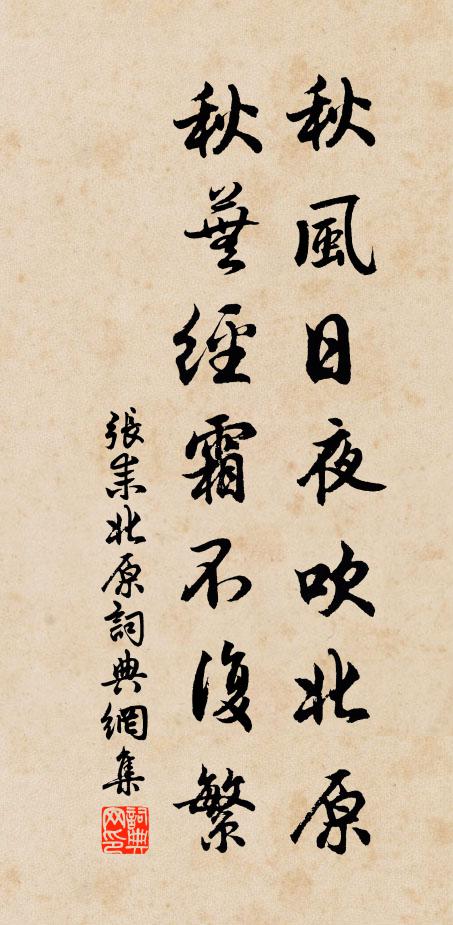 秋風日夜吹北原
秋蕪經霜不復繁
張耒北原詞典網集
詞典网印